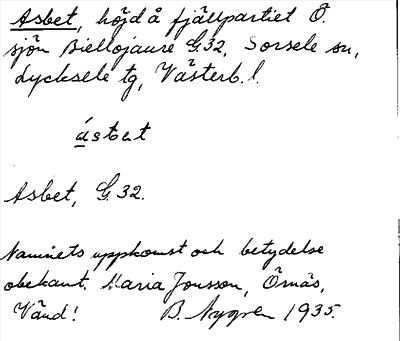 Asbet, höjd å fjällpartiet Ö.
sjön Biellojaure G32, Sorsele sn,
Lycksele tg, Västerb. l.
ástɐt
Asbet, G.32.
Namnets uppkomst och betydelse
obekant. Maria Jonsson, Örnäs,
Vänd! B. Nygren 1935.